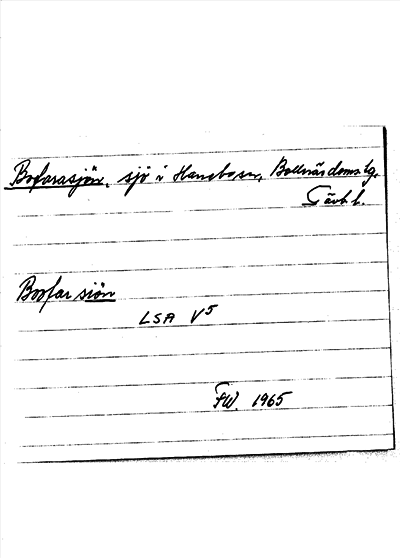 Bofarasjön, sjö i Hanebo sn, Bollnäs domsbg,
Gävb. l.
Boofar siön
LSA V5
FW. 1965